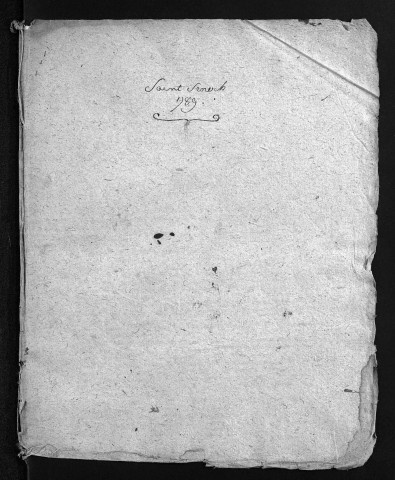 Saint Seneck
1789.